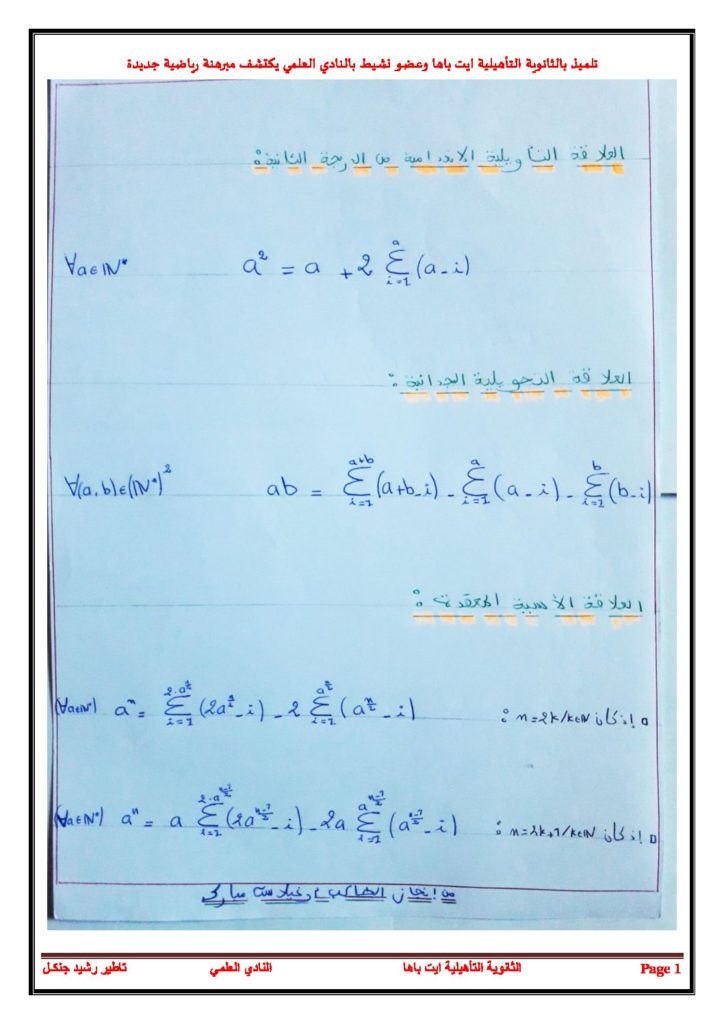 تلميذ بالثانوية التأهيلية ايت باها وعضو نشيط بالنادي العلمي يكتشف مبرهنة رياضية جديدة
العلاقة التأويلية الاندماجية من الدرجة الثانية:
∀a∈ℕ* a² = a + 2 Σ_{i=1}^{a} (a-i)
العلاقة التحويلية الجدائية:
∀(a,b)∈(ℕ*)² ab = Σ_{i=1}^{a+b} (a+b-i) - Σ_{i=1}^{a} (a-i) - Σ_{i=1}^{b} (b-i)
العلاقة الأسية المعقدة:
(∀a∈ℕ*) aⁿ = Σ_{i=1}^{2·a^{n/2}} (2a^{n/2}-i) - 2 Σ_{i=1}^{a^{n/2}} (a^{n/2}-i) □ إذ كان n=2k/k∈ℕ :
(∀a∈ℕ*) aⁿ = a Σ_{i=1}^{2·a^{(n-1)/2}} (2a^{(n-1)/2}-i) - 2a Σ_{i=1}^{a^{(n-1)/2}} (a^{(n-1)/2}-i) □ إذ كان n=2k+1/k∈ℕ :
من إنجاز الطالب
تاطير رشيد جنكل النادي العلمي الثانوية التأهيلية ايت باها Page 1